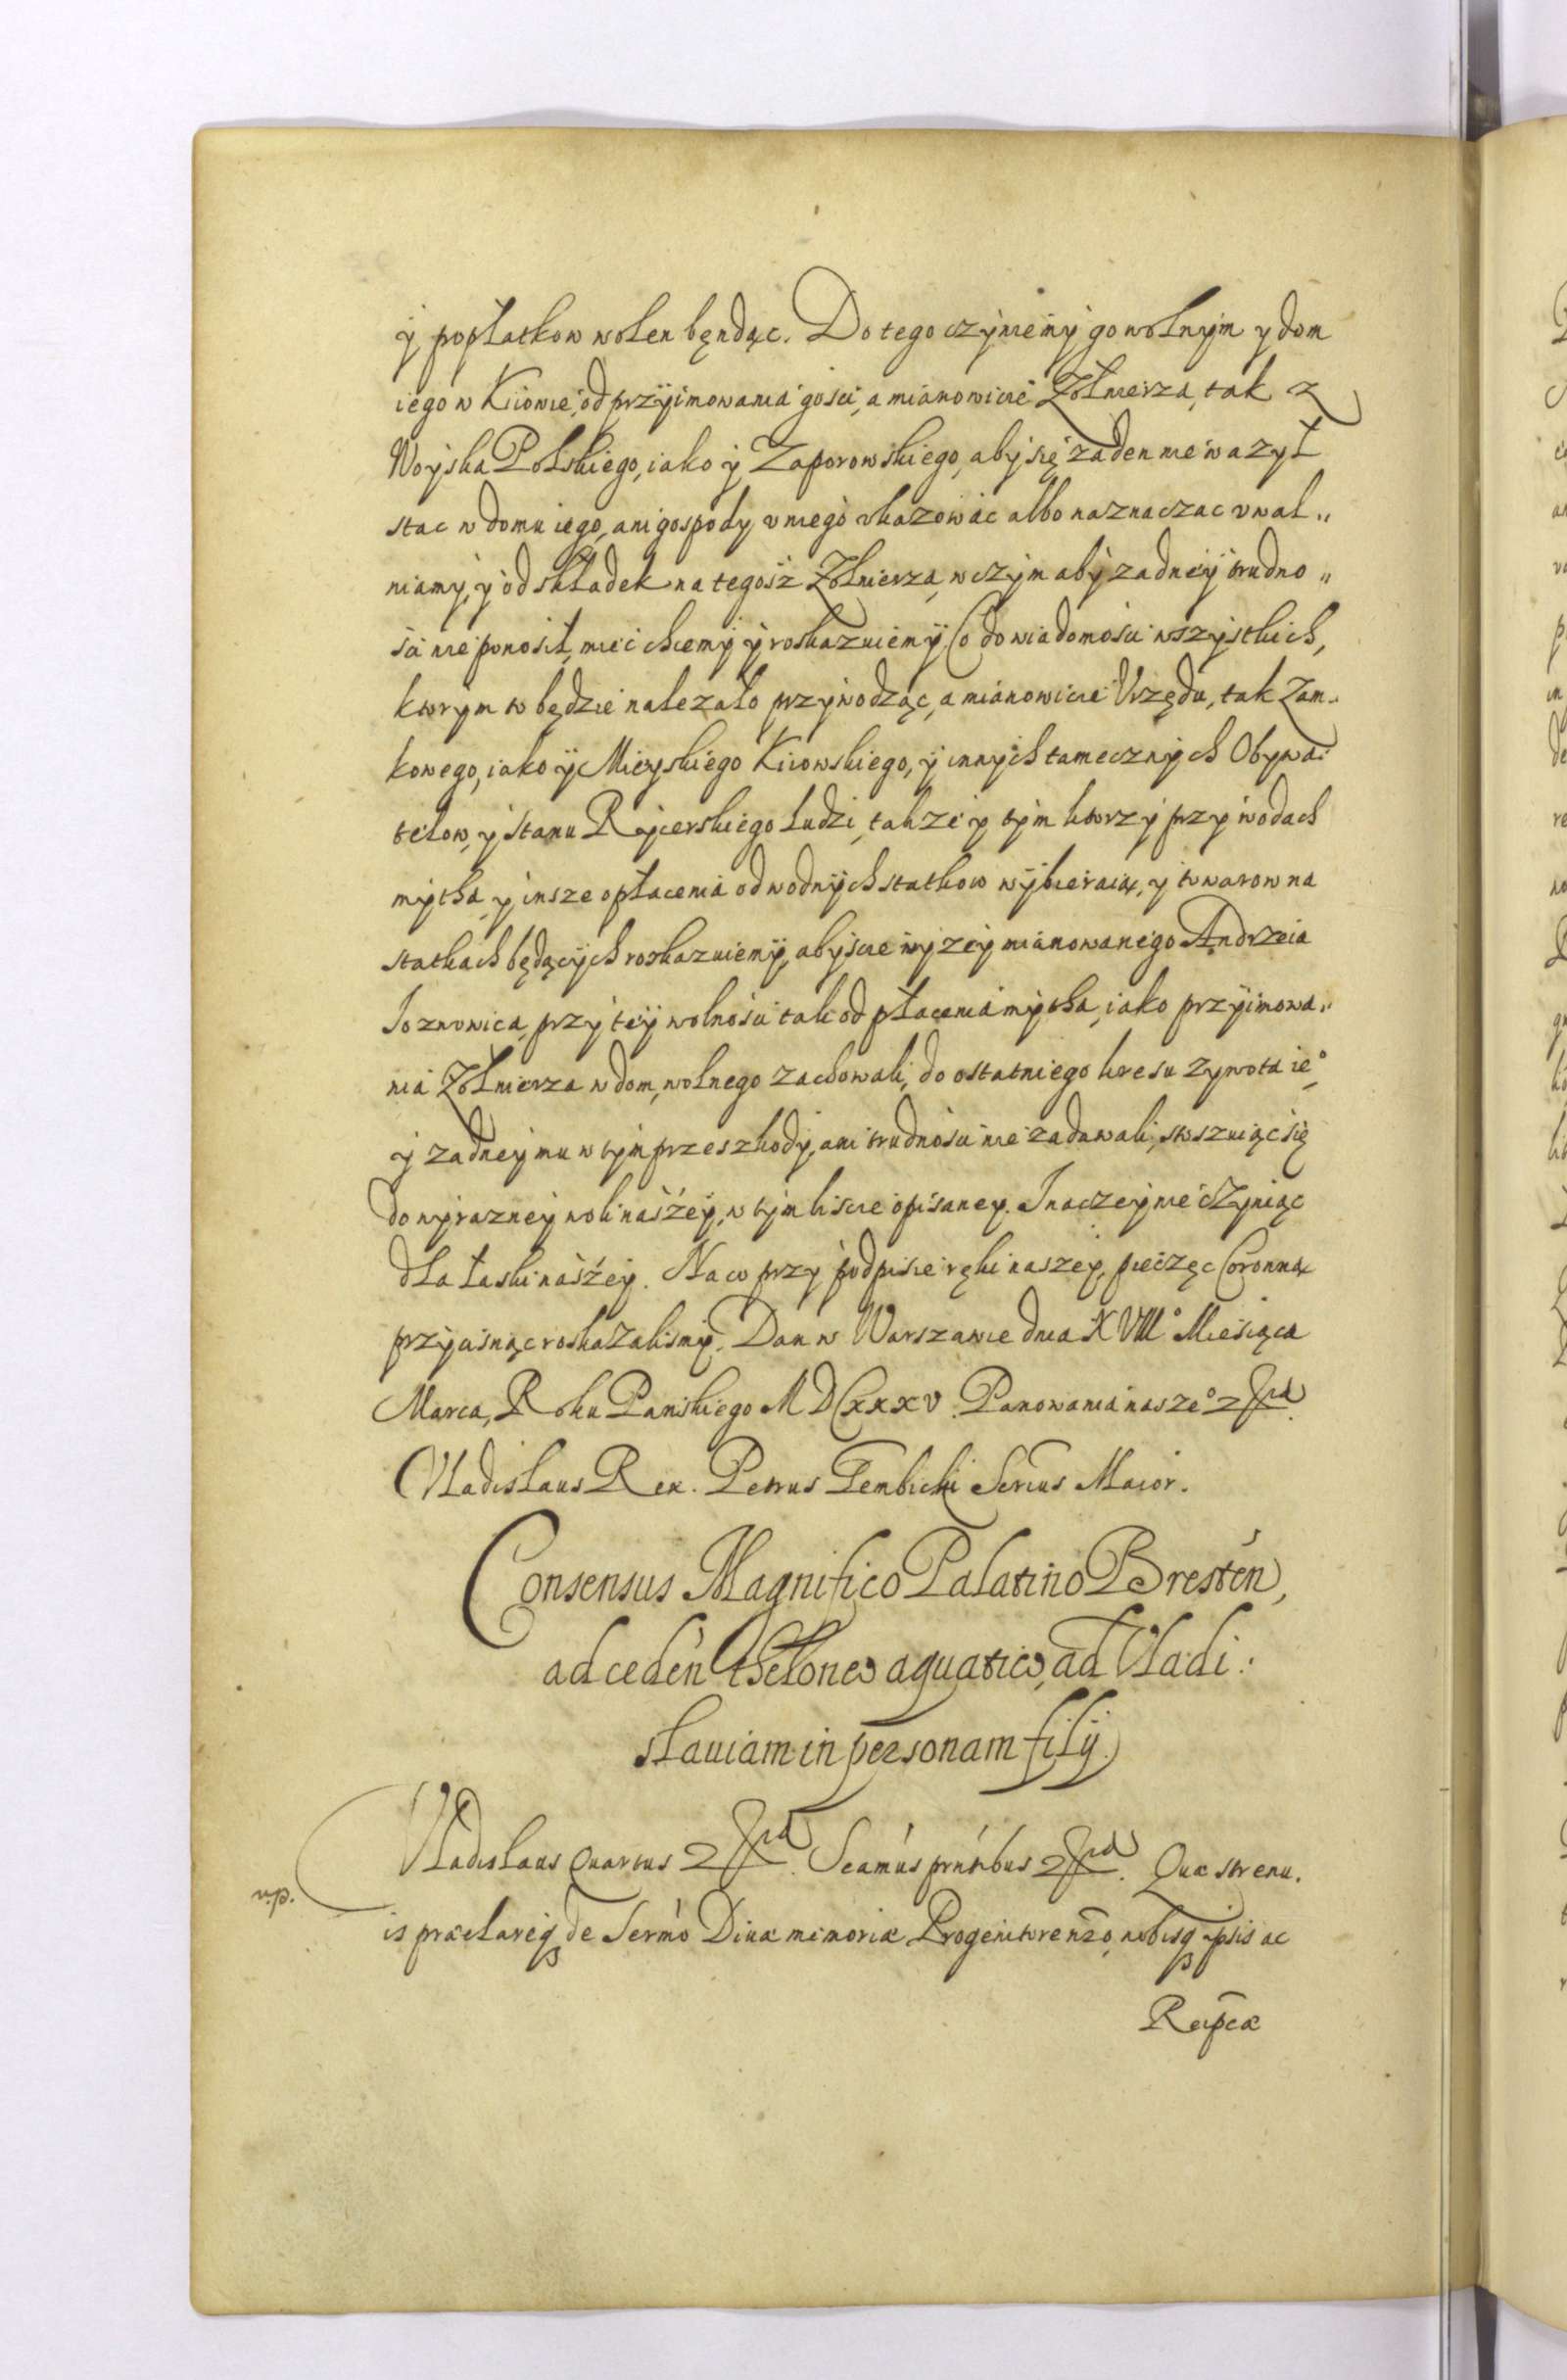 ÿ popłatkow wolen będąc. Do tego czÿniemÿ go wolnÿm y dom
iego w Kiiowie, od przÿimowania gości, a mianowicie Żołnierza, tak z
Woÿska Polskiego, iako ÿ Zaporowskiego, abÿ się żaden nie ważył
stac w domu iego, ani gospody v niego vkazowác albo naznaczac vwal„
niamÿ, ÿ od składek na tegosz Żołnierza, w czÿm abÿ zadneÿ trudno„
ści nie ponosił, miec chcemÿ ÿ roskazuiemÿ. Co do wiadomości wszÿstkich,
ktorÿm to będzie nalezało przÿwodząc, a mianowicie Vrzędu, tak Zam„
kowego, iako ÿ Mieyskiego Kiiowskiego, ÿ innÿch tamecznÿch Obÿwa„
telow, ÿ stanu Rÿcerskiego ludzi, takze ÿ tÿm ktorzÿ przÿ wodach
mÿtha, ÿ insze opłacenia od wodnÿch statkow wÿbieraią, ÿ towarow na
statkach będącÿch roskazuiemÿ, abÿście wÿzeÿ mianowanego Andrzeia
Joznowica, przÿ teÿ wolności tak od płacenia mÿtha, iako przÿimowa„
nia Żołnierza w dom, wolnego zachowali, do ostatniego kresu zywota ie°
ÿ zadneÿ mu w tÿm przeszkodÿ, ani trudności nie zadawali, stosuiąc się
do wÿrazneÿ woli naszéÿ, w tÿm liscie opisaney. Inaczeÿ nie czÿniąc
dla łaski naszéÿ. Na co przÿ podpisie ręki naszeÿ, pieczęc Coronną
przÿcisnąc roskazalismÿ. Dan w Warszawie dnia XVIII° Miesiąca
Marca, Roku Panskiego MDCXXXV. Panowania násze° &c.
Vladislaus Rex. Petrus Gembicki Secrius Maior.
Consensus Magnifico Palatino Brestén,
ad cedén theloneo aquatico, ad Vladi:
slauiam in personam filÿ.
Vladislaus Quartus &c. Scamús prntibus &c. Quæ strenu.
v.p.
is præclareq; de Sermo Diuæ memoriæ Progenitore nro, nobisq; ipsis ac
Reipcæ